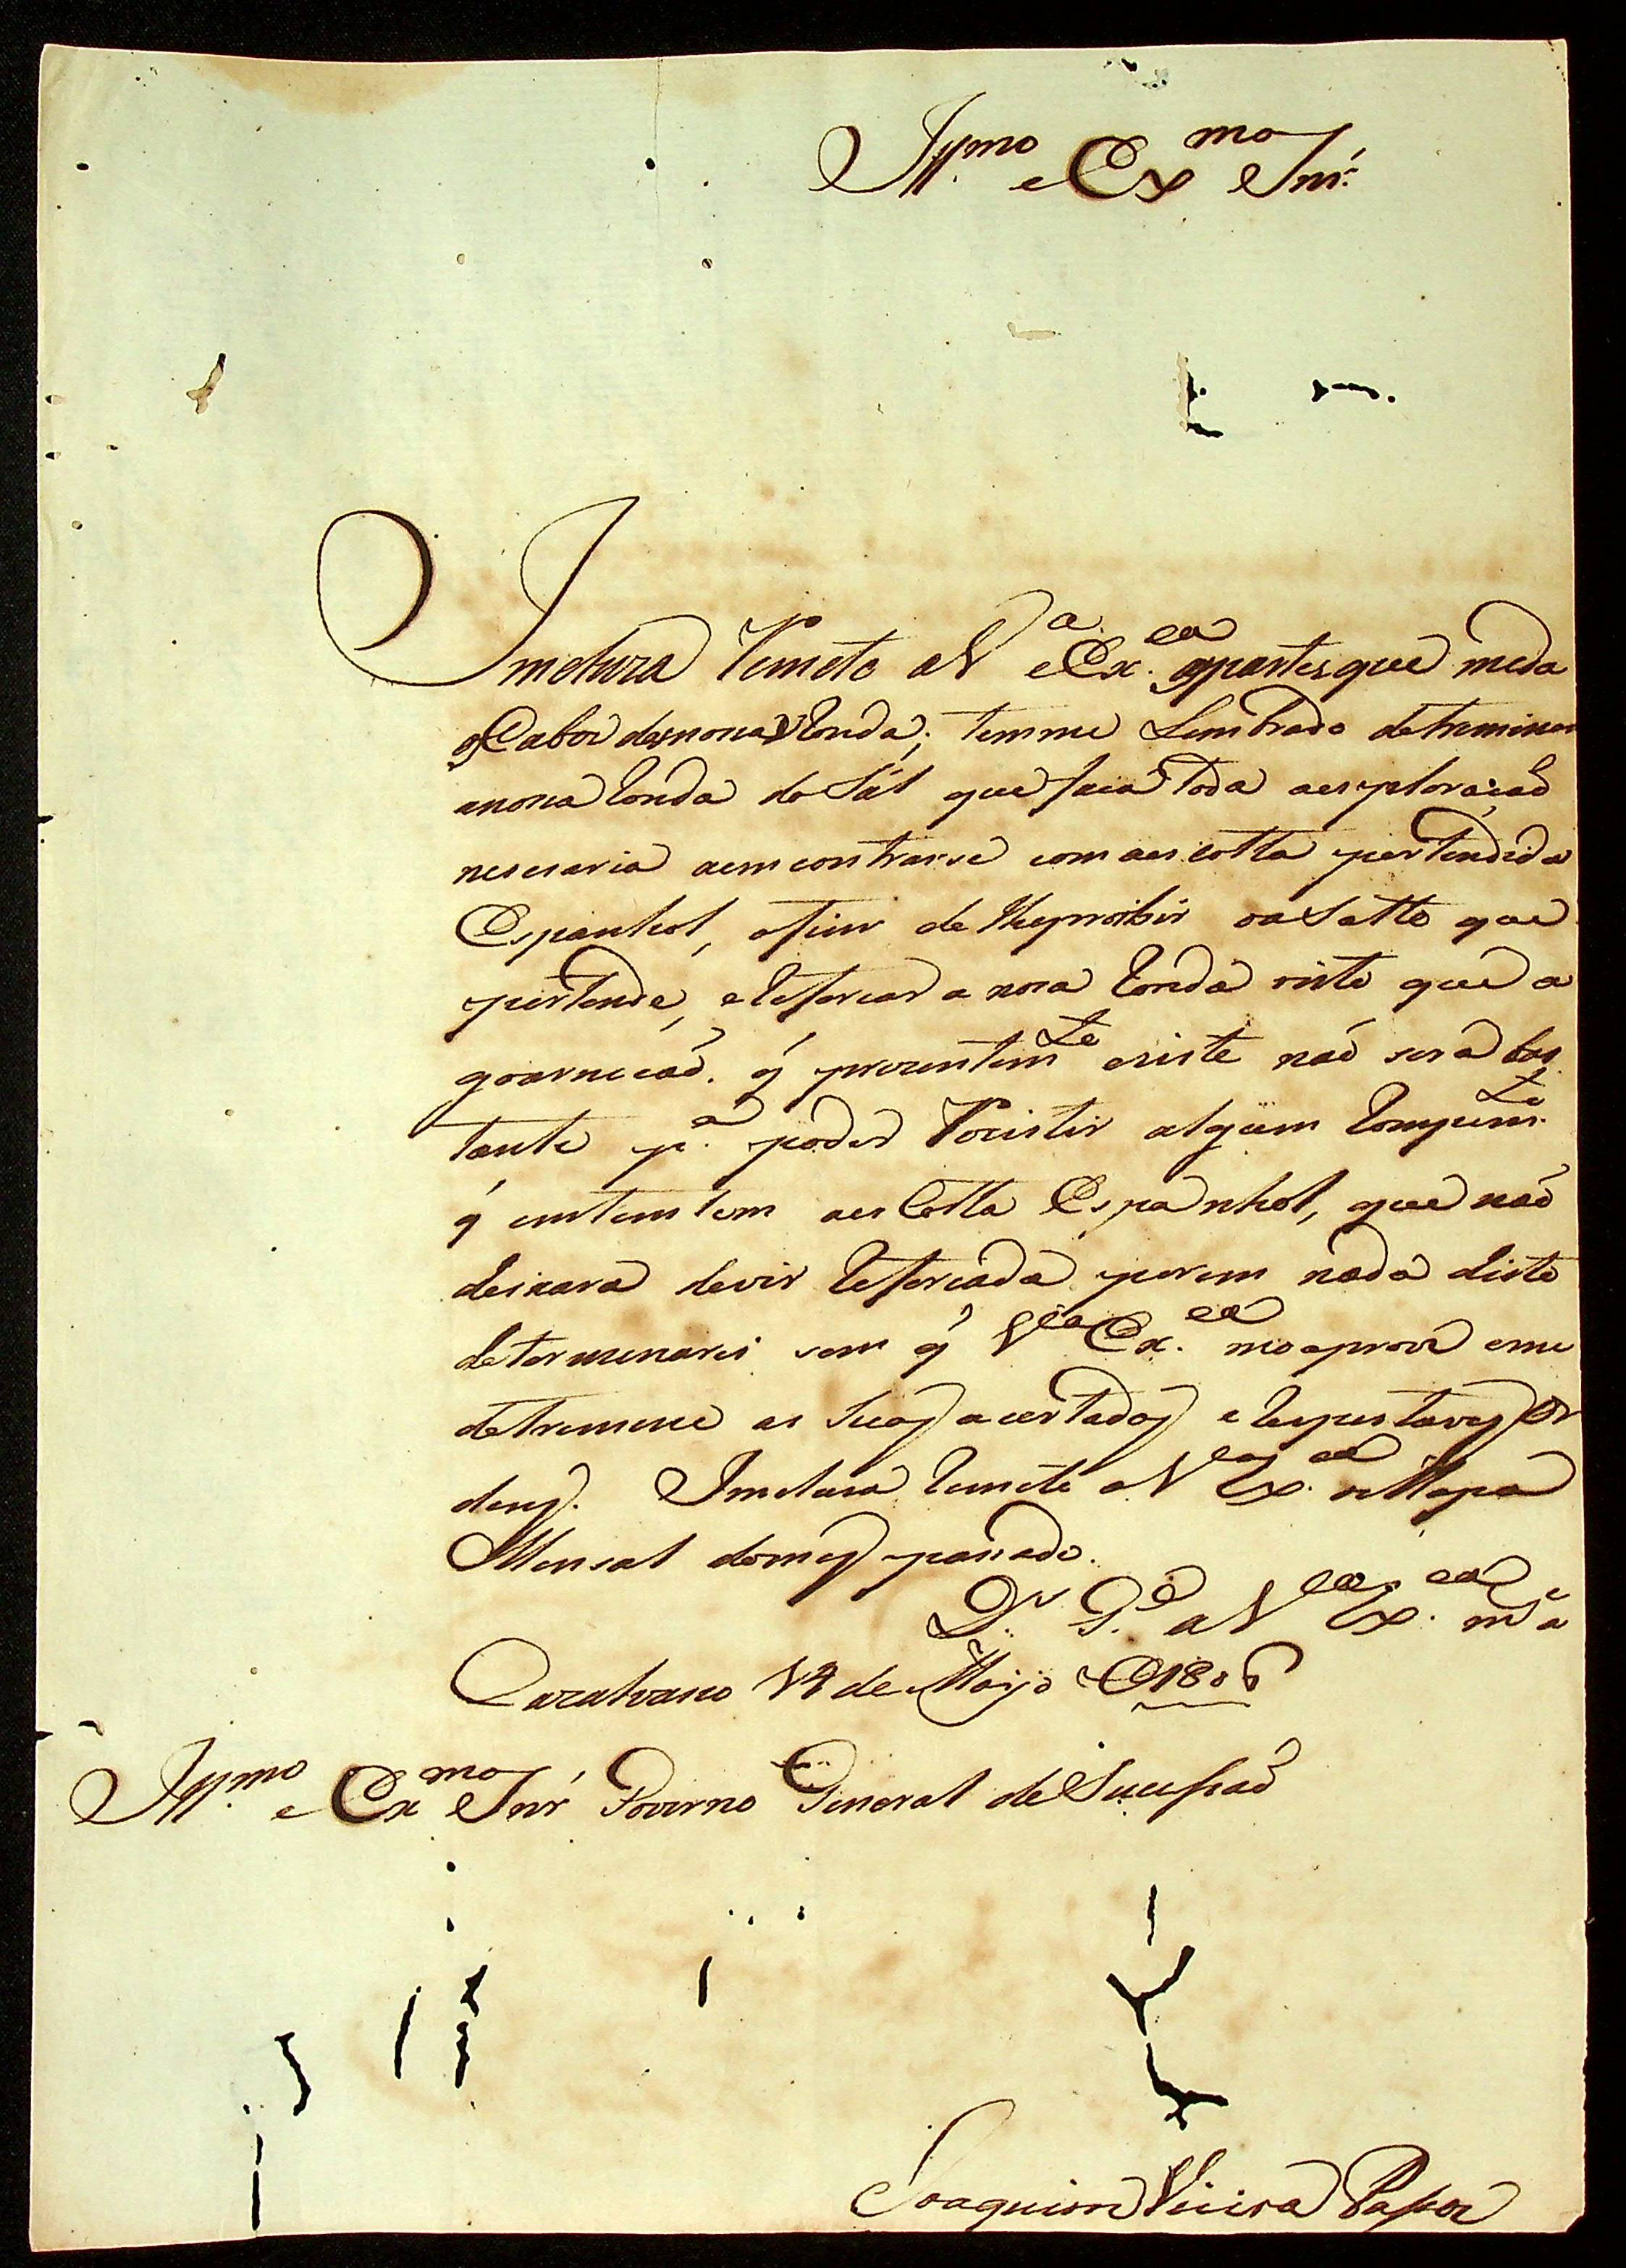 Ill.mo e Ex.mo Snr.
Incluza Remeto a V.a Ex.ca as partes que me da
o Cabo da nosa Ronda; tem me Lembrado detreminar
a nosa Ronda do Sál que faca toda a esploracaõ
nesesaria a emcontrarse com a escolta pertendida
Espanhol, afim de lhe proibir o asalto que
pertende, e Reforcar a nosa Ronda visto que a
goarnicaõ. q' prezentem.te existe naõ será bas
tante p.a poder Rezistir algum Rompim.te
q' emtentem a escolta Espanhol, que naõ
deixara de vir Reforcada porem nada disto
determinarei sem q' V.a Ex.ca mo aprove e me
detremine as Suas acertadas e Respeitaveis Or
dens. Incluza Remeto a V.a Ex.ca o Mapa
Mensal do mes pasado.
D.s G.e a V.a Ex.ca m.s a.
Cazalvasco 14 de Maijo D 1806
Ill.mo e Ex.mo Snr' Governo General de Sucessaõ
Joaquim Vieira Passos